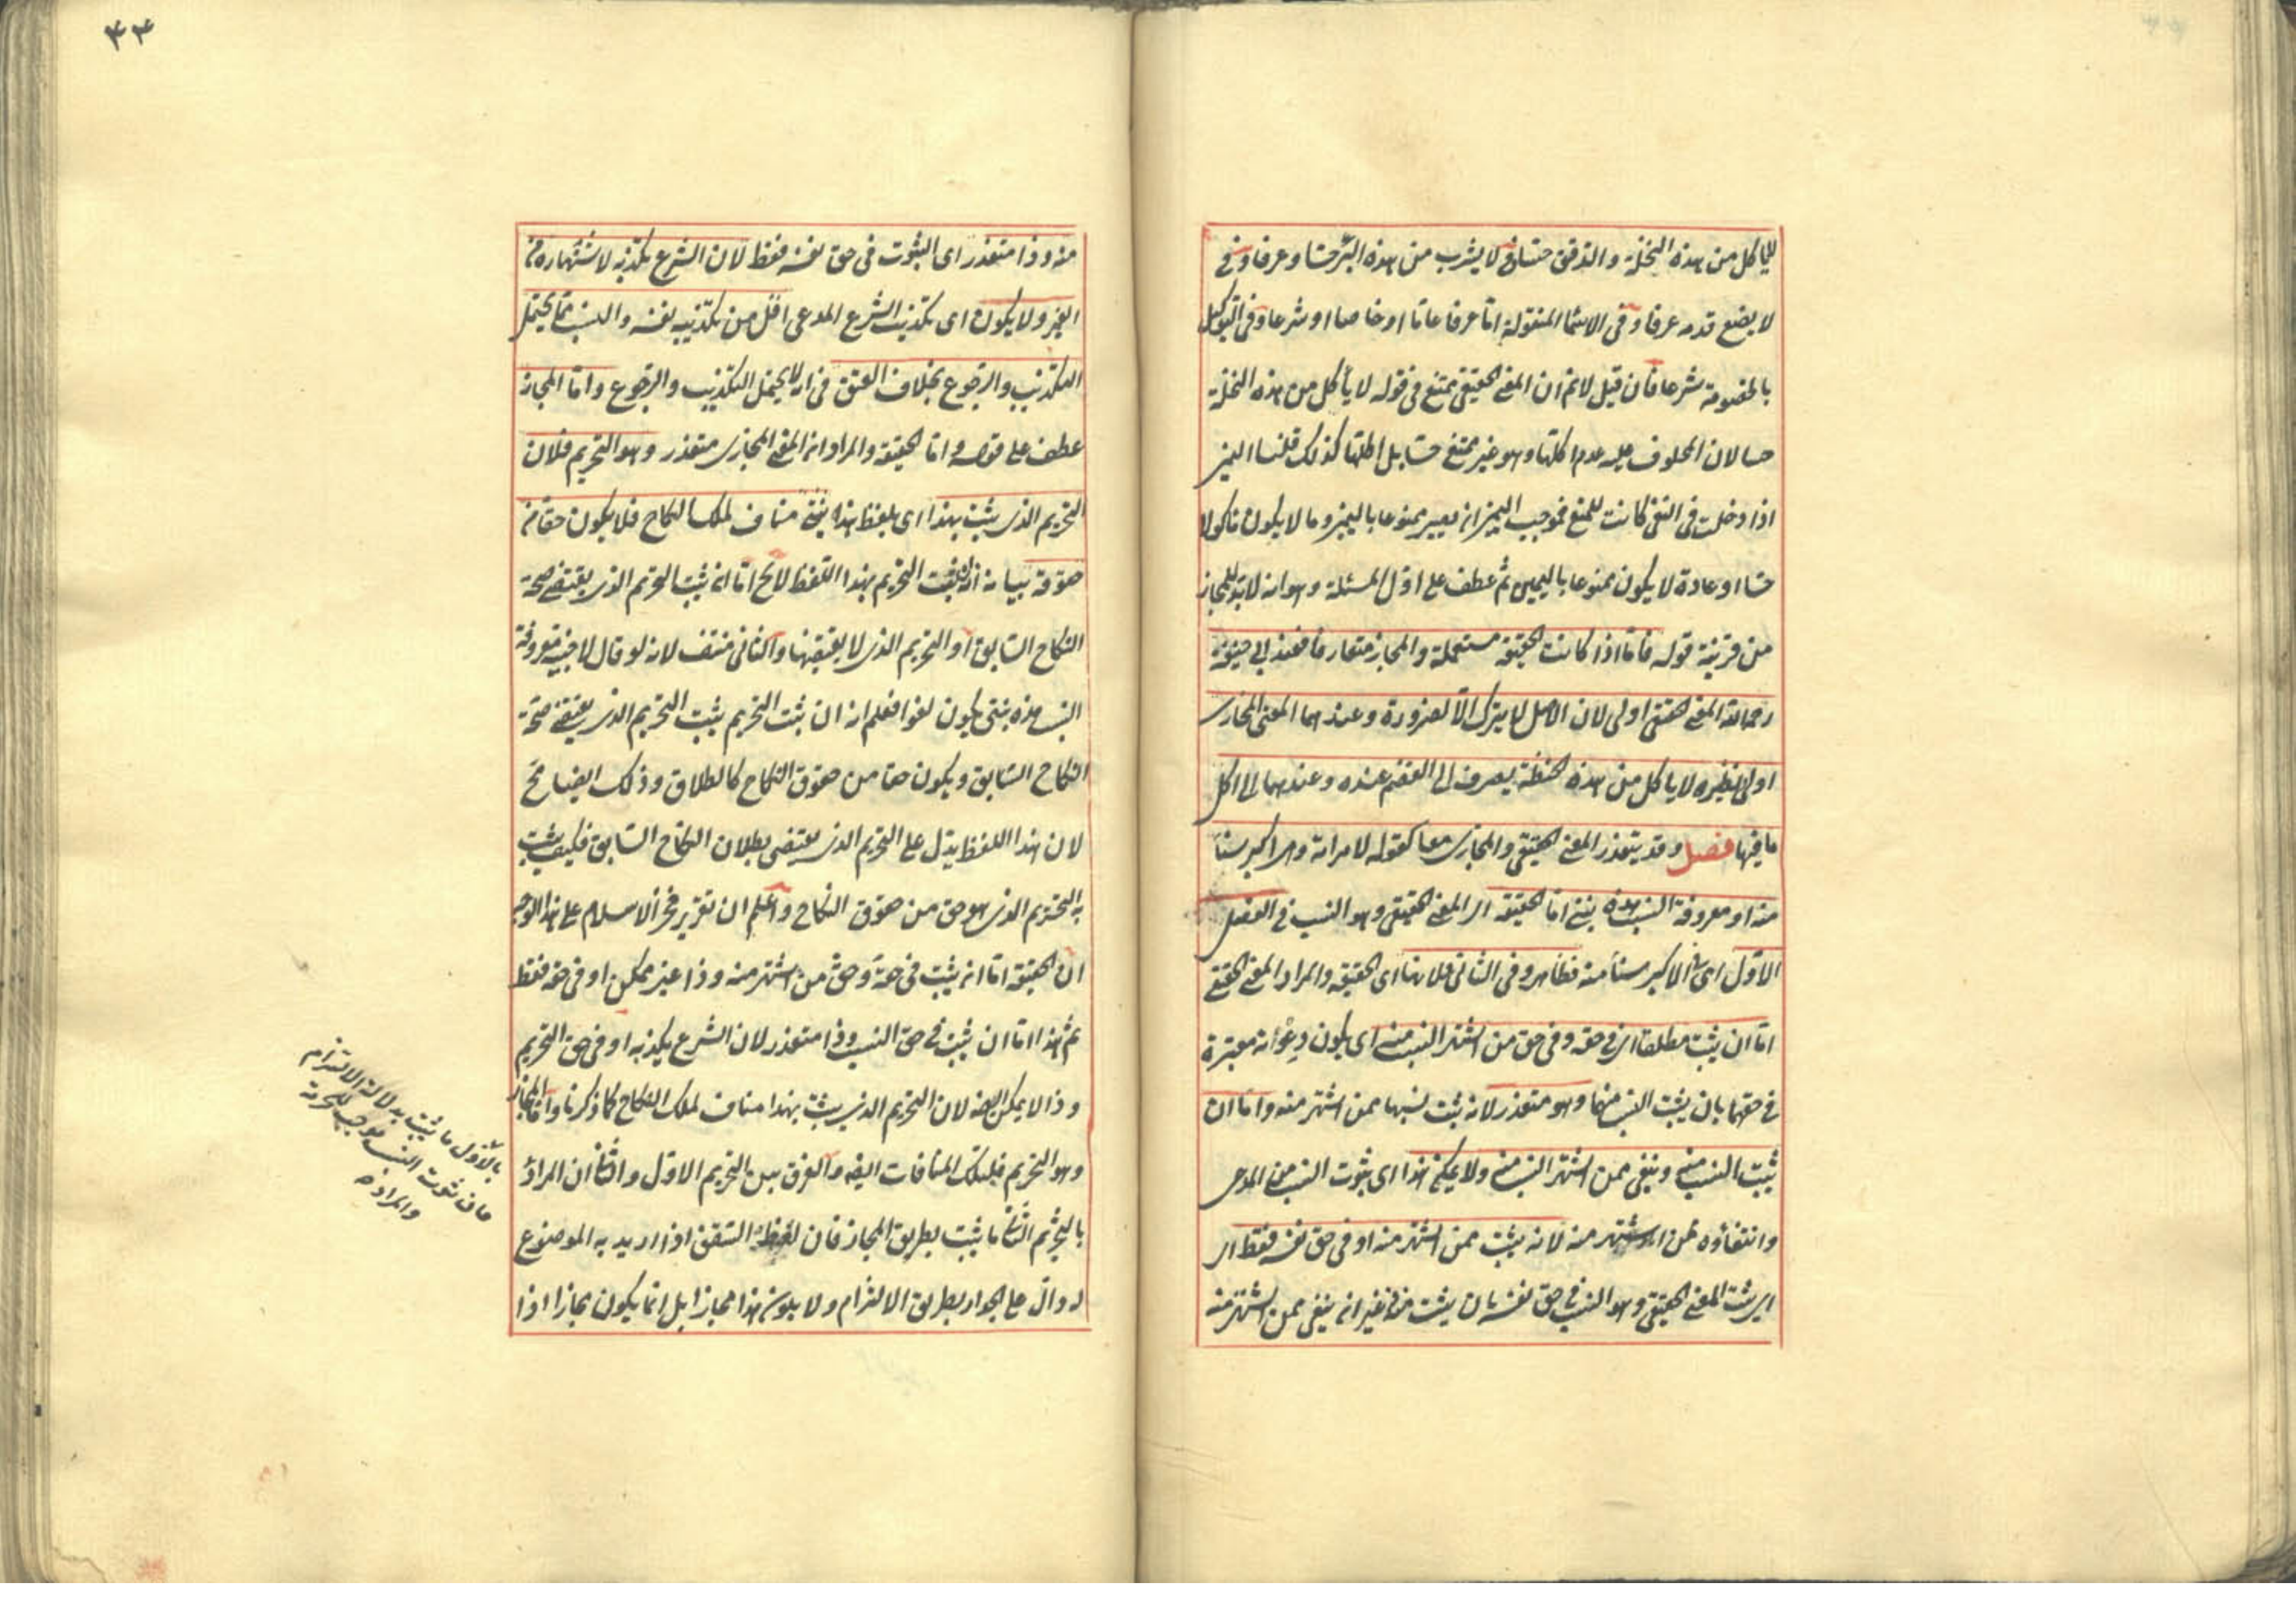 لا يأكل من هذه النخلة والدقيق حسا وفي لا يشرب من هذه البئر حسا وعرفا وفي
لا يضع قدمه عرفا وفي الاسما المنقولة اما عرفا عاما او خاصا او شرعا وفي التوكيل
بالخصومة شرعا فان قيل لا نم ان المعنى الحقيقي ممتنع في قوله لا يأكل من هذه النخلة
حسا لان المحلوف عليه عدم اكلها وهو غير ممتنع حسا بل اكلها كذلك قلنا اليمين
اذا دخلت في النفي كانت للمنع فموجب اليمين ان يصير ممنوعا باليمين وما لا يكون مأكولا
حسا او عادة لا يكون ممنوعا باليمين ثم عطف على اول المسئلة وهو انه لا بد للمجاز
من قرينة قوله فاما اذا كانت الحقيقة مستعملة والمجاز متعارفا فعند ابي حنيفة
رحمه الله المعنى الحقيقي اولى لان الاصل لا يترك الا لضرورة وعندهما المعنى المجازي
اولى نظيره لا يأكل من هذه الحنطة يصرف الى القضم عنده وعندهما الى اكل
ما فيها فصل وقد يتعذر المعنى الحقيقي والمجازي معا كقوله لامراته وهي اكبر سنا
منه او معروفة النسب هذه بنتي اما الحقيقة اي المعنى الحقيقي وهو النسب في الفصل
الاول اي في الاكبر سنا منه فظاهر وفي الثاني فلانها اي الحقيقة والمراد المعنى الحقيقي
اما ان يثبت مطلقا اي في حقه وفي حق من اشتهر النسب منه اي يكون دعوته معتبرة
في حقهما بان يثبت النسب منهما وهو متعذر لانه يثبت نسبها ممن اشتهر منه واما ان
يثبت النسب منه وينفى ممن اشتهر النسب منه ولا يمكن هذا اي ثبوت النسب من المدعي
وانتفاؤه ممن اشتهر منه لانه يثبت ممن اشتهر منه او في حق نفسه فقط اي
اي يثبت المعنى الحقيقي وهو النسب في حق نفسه بان يثبت منه من غير ان ينفى ممن اشتهر منه
منه وذا متعذر اي الثبوت في حق نفسه فقط لان الشرع يكذبه لاشتهاره من
الغير ولا يكون اي تكذيب الشرع المدعي اقل من تكذيبه نفسه والنسب مما يحتمل
التكذيب والرجوع بخلاف العتق فانه لا يحتمل التكذيب والرجوع واما المجاز
عطف على قوله واما الحقيقة والمراد انه المعنى المجازي متعذر وهو التحريم فلان
التحريم الذي يثبت بهذا اي بلفظ هذه بنتي مناف لملك النكاح فلا يكون حقا من
حقوقه بيانه انه ان ثبت التحريم بهذا اللفظ لا يخ اما ان يثبت التحريم الذي يقتضي صحة
النكاح السابق او التحريم الذي لا يقتضيها والثاني منتف لانه لو قال لاجنبية معروفة
النسب هذه بنتي يكون لغوا فعلم انه ان ثبت التحريم يثبت التحريم الذي يقتضي صحة
النكاح السابق ويكون حقا من حقوق النكاح كالطلاق وذلك ايضا مح
لان هذا اللفظ يدل على التحريم الذي يقتضي بطلان النكاح السابق فكيف يثبت
به التحريم الذي هو حق من حقوق النكاح واعلم ان تقرير فخر الاسلام على هذا الوجه
ان الحقيقة اما ان يثبت في حقه وحق من اشتهر منه وذا غير ممكن او في حقه فقط
ثم هذا اما ان يثبت في حق النسب وذا متعذر لان الشرع يكذبه او في حق التحريم
وذا لا يمكن ايضا لان التحريم الذي يثبت بهذا مناف لملك النكاح كما ذكرنا واما المجاز
وهو التحريم فلتلك المنافات ايضا والفرق بين التحريم الاول والثاني ان المراد
بالتحريم الثاني ما يثبت بطريق المجاز فان لفظ السقف اذا اريد به الموضوع
له دال على الجدار بطريق الالتزام ولا يكون هذا مجازا بل انما يكون مجازا اذا
بالاول ما يثبت بدلالة الالتزام
فان ثبوت النسب موجب للحرمة
والمراد
٤٣